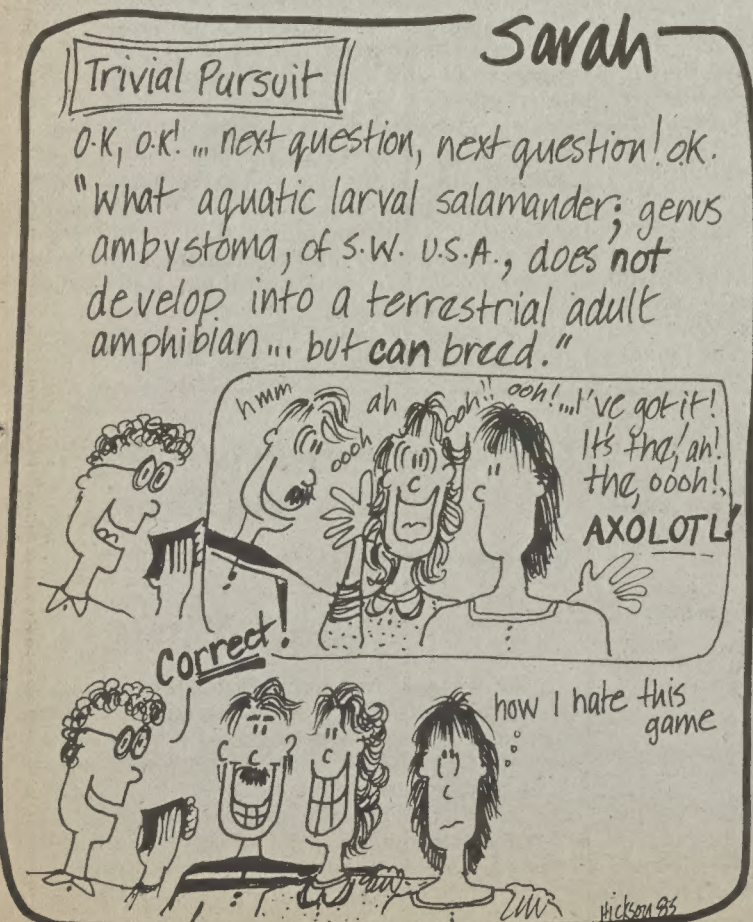 Sarah
Trivial Pursuit
O.K, O.K! ... next question, next question! O.K.
"What aquatic larval salamander; genus
ambystoma, of S.W. U.S.A., does not
develop into a terrestrial adult
amphibian ... but can breed."
hmm
oooh
ah
ooh!! ooh!...I've got it!
It's the, ah!
the, oooh!..
AXOLOTL!
Correct!
how I hate this
game
Hickson 85